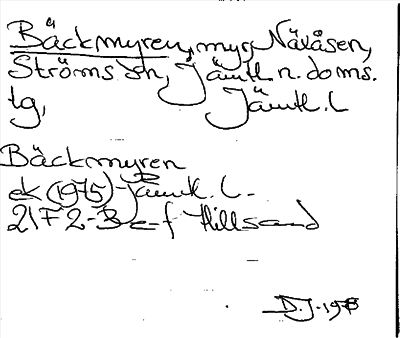 Bäckmyren, myr, Näxåsen,
Ströms sn, Jämtl. n. doms.
lg, Jämtl. l
Bäckmyren
ek (1975) Jämtl. l -
21F 2-3 e-f Hillsand
D.J. 1978